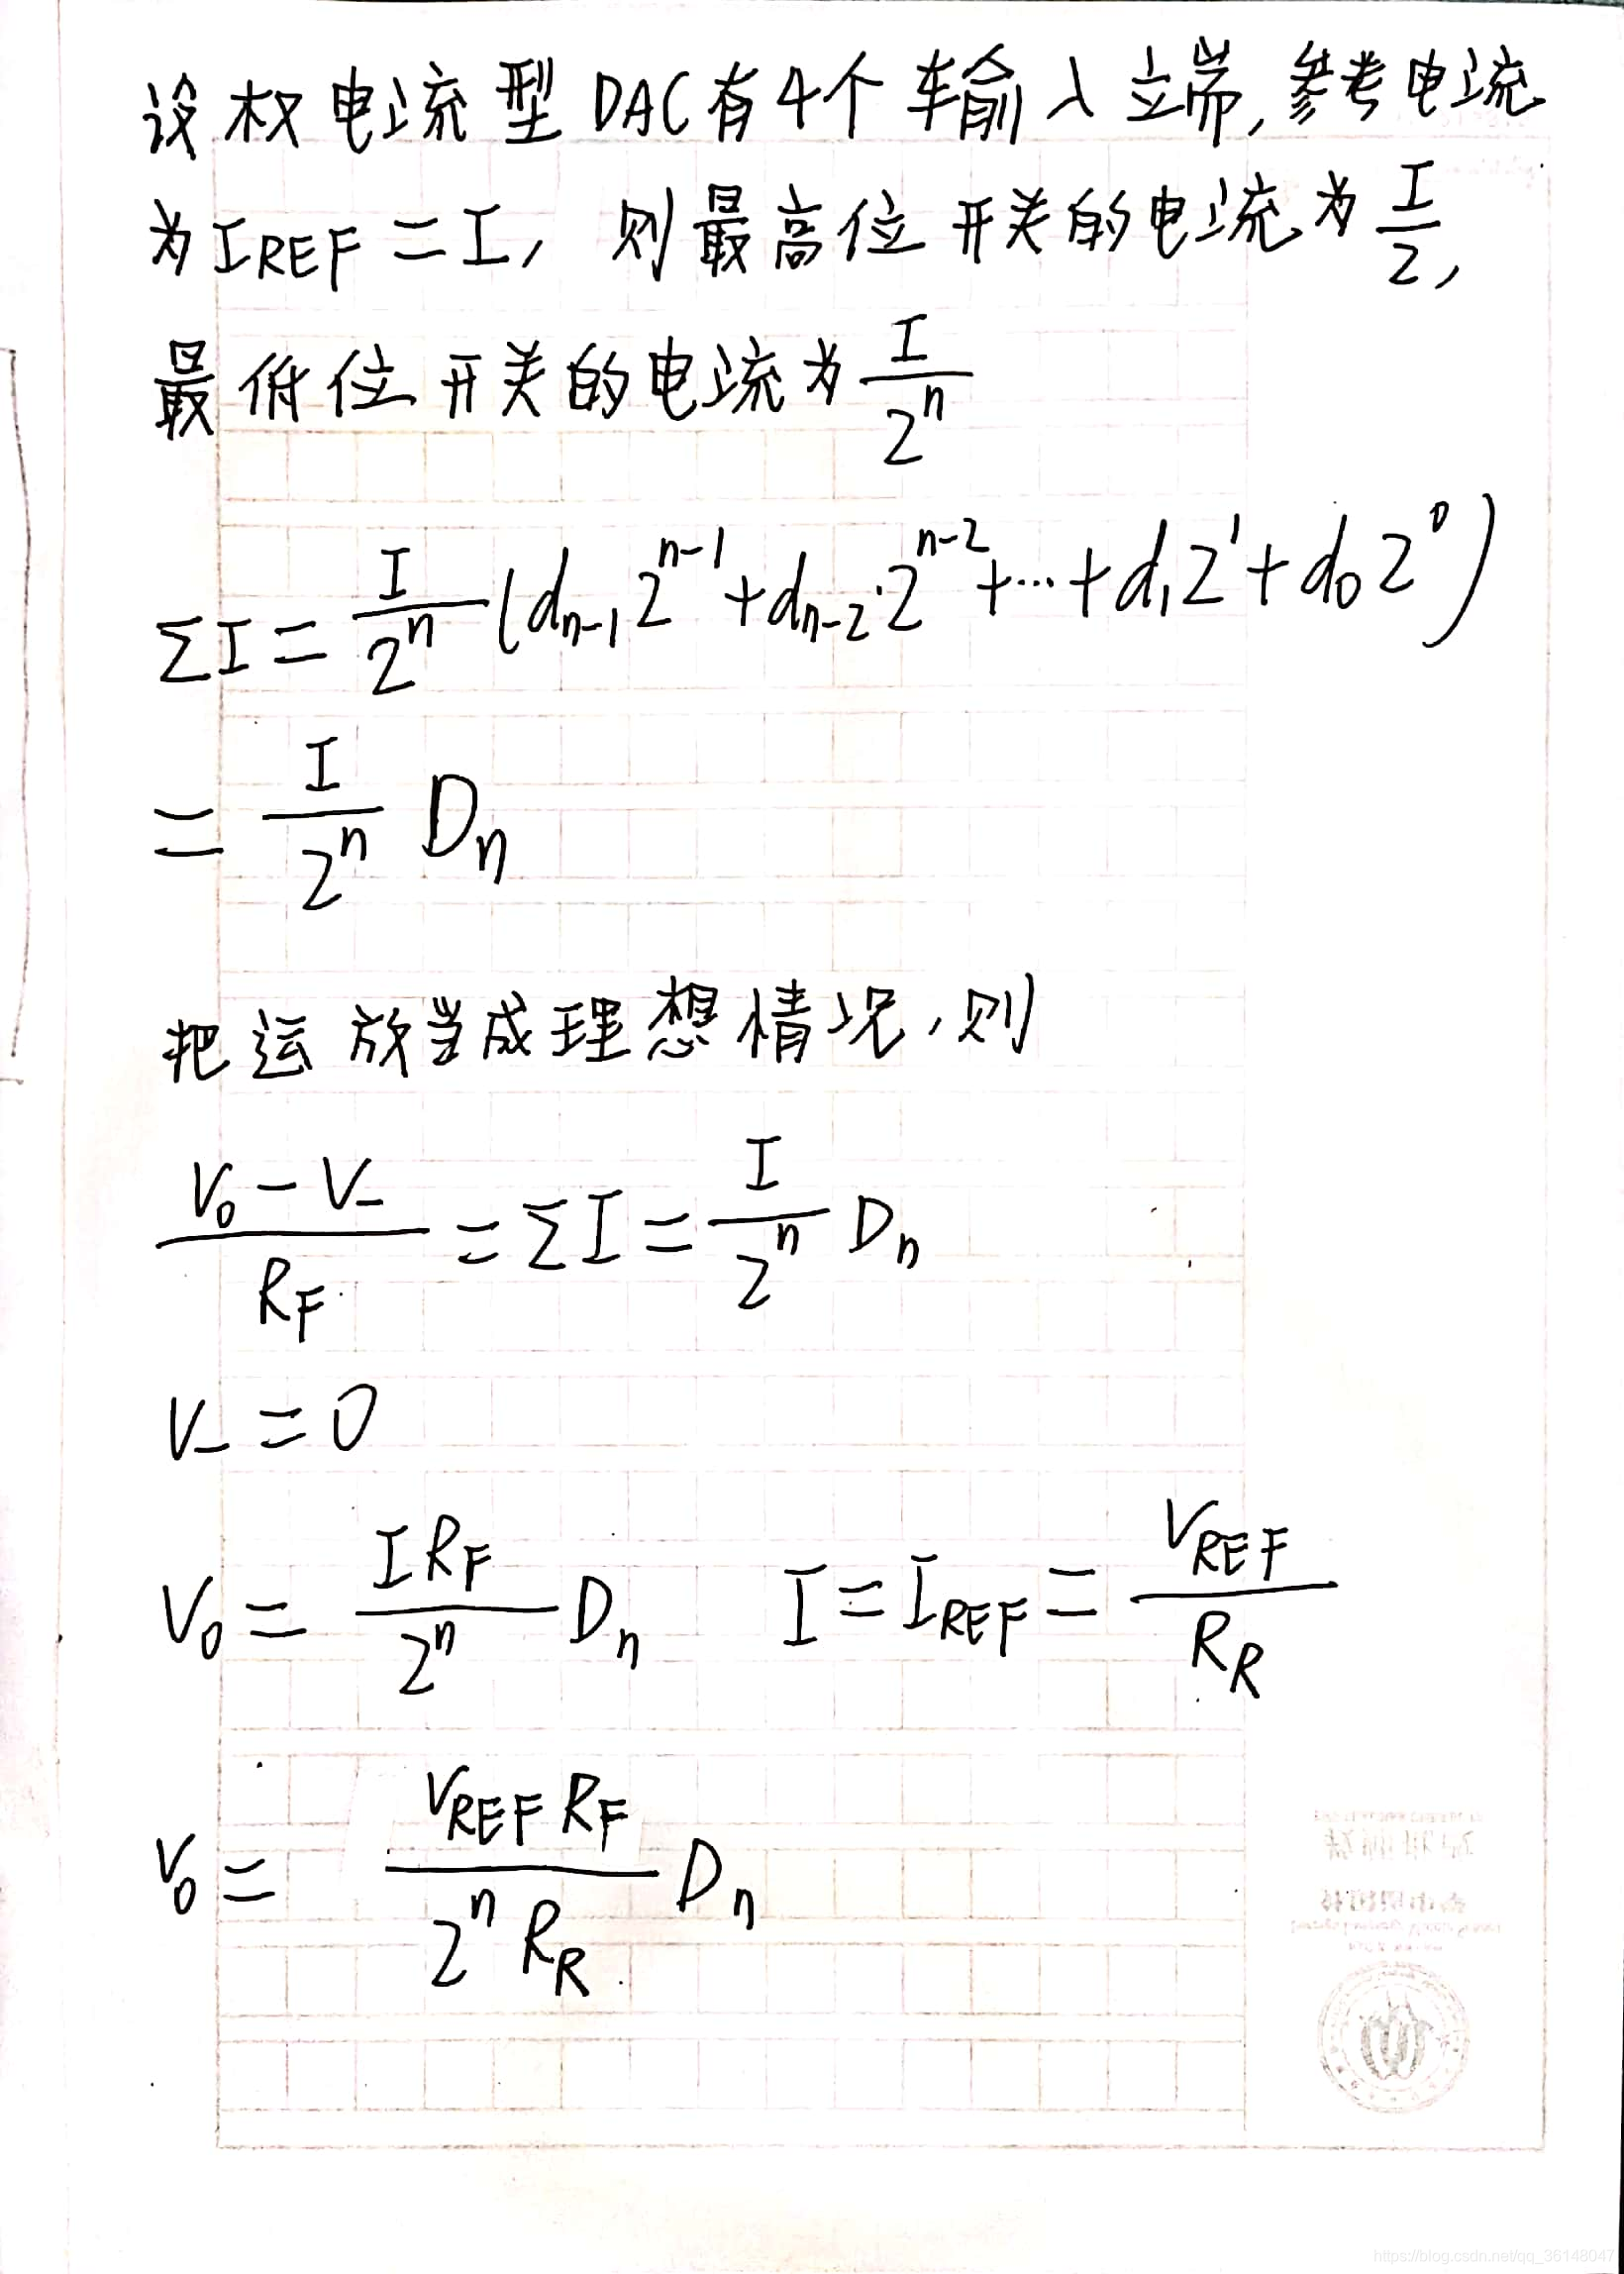 设权电流型DAC有4个输入立端,参考电流
为IREF=I, 则最高位开关的电流为I/2,
最低位开关的电流为I/2^n
ΣI=I/2^n(d_{n-1}2^{n-1}+d_{n-2}·2^{n-2}+…+d_1 2^1+d_0 2^0)
=I/2^n D_n
把运放当成理想情况,则
(V_0-V_-)/R_F=ΣI=I/2^n D_n
V_-=0
V_0=IR_F/2^n D_n I=I_REF=V_REF/R_R
V_0=V_REF R_F/(2^n R_R) D_n
https://blog.csdn.net/qq_36148047